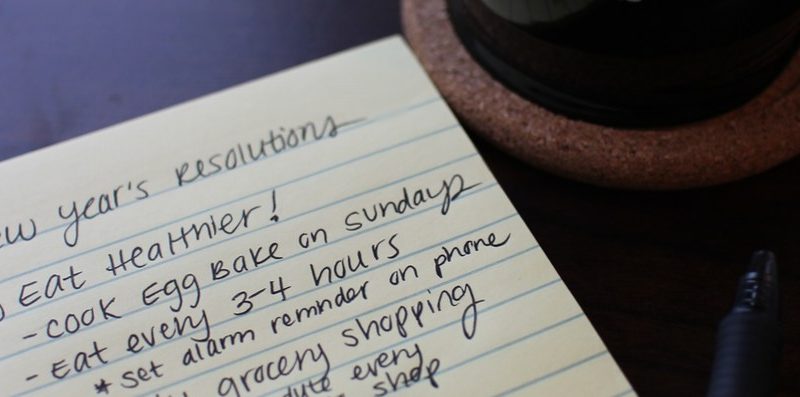 year's resolutions
Eat Healthier!
- cook Egg Bake on sundays
- Eat every 3-4 hours
* set alarm remnder on phone
grocery shopping
every
shop